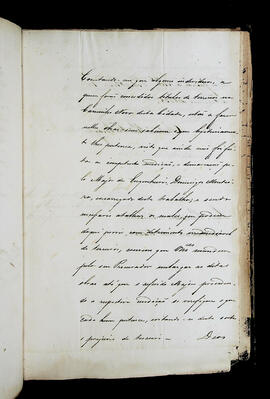 Constando-me que alguns individuos, a
quem foram concedidos titulos de terrenos no
Caminho Novo desta Cidade, estão a fazer
nelles obras sem saberem o que legitimamen-
te lhes pertence, visto que ainda não foi fei-
ta a competente medição, e demarcação pe-
lo Major de Engenheiros Domingos Montei-
ro, encarregado deste trabalho, e sendo
atalhar os males, que podem
daqui provir com detrimento
de terceiro, cumpre que
pelo seu Procurador embargar as ditas
obras até que o referido Major proceden-
do a respectiva medição se verifique o que
cada hum pertence, evitando-se deste modo
o prejuizo de terceiro — Deos